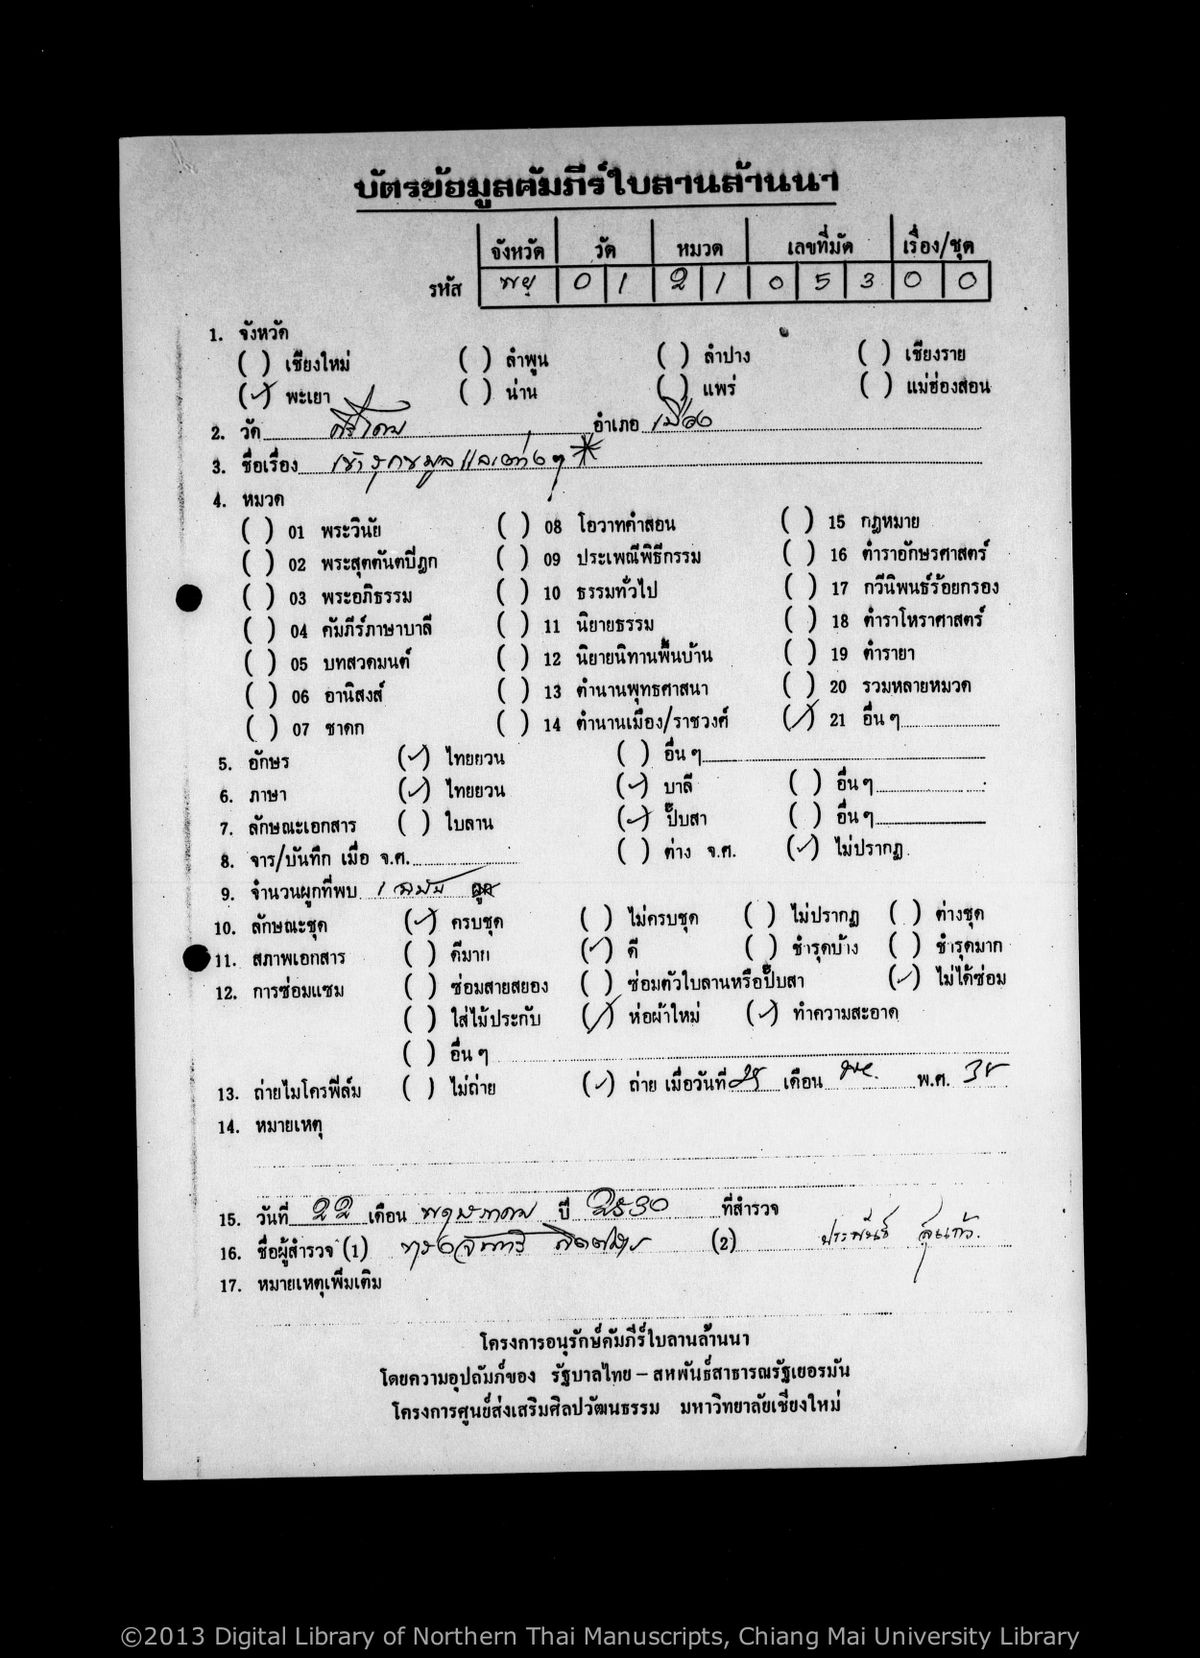 บัตรข้อมูลคัมภีร์ใบลานล้านนา
จังหวัด วัด หมวด เลขที่มัด เรื่อง/ชุด
รหัส พย 0 1 2 1 0 5 3 0 0
1. จังหวัด
( ) เชียงใหม่ ( ) ลำพูน ( ) ลำปาง ( ) เชียงราย
(✓) พะเยา ( ) น่าน ( ) แพร่ ( ) แม่ฮ่องสอน
2. วัด ศรีโคม อำเภอ เมือง
3. ชื่อเรื่อง เข้ารุกขมูลและต่างๆ *
4. หมวด
( ) 01 พระวินัย ( ) 08 โอวาทคำสอน ( ) 15 กฎหมาย
( ) 02 พระสุตตันตปิฎก ( ) 09 ประเพณีพิธีกรรม ( ) 16 ตำราอักษรศาสตร์
( ) 03 พระอภิธรรม ( ) 10 ธรรมทั่วไป ( ) 17 กวีนิพนธ์ร้อยกรอง
( ) 04 คัมภีร์ภาษาบาลี ( ) 11 นิยายธรรม ( ) 18 ตำราโหราศาสตร์
( ) 05 บทสวดมนต์ ( ) 12 นิยายนิทานพื้นบ้าน ( ) 19 ตำรายา
( ) 06 อานิสงส์ ( ) 13 ตำนานพุทธศาสนา ( ) 20 รวมหลายหมวด
( ) 07 ชาดก ( ) 14 ตำนานเมือง/ราชวงศ์ (✓) 21 อื่น ๆ
5. อักษร (✓) ไทยยวน ( ) อื่น ๆ
6. ภาษา (✓) ไทยยวน (✓) บาลี ( ) อื่น ๆ
7. ลักษณะเอกสาร ( ) ใบลาน (✓) ปั๊บสา ( ) อื่น ๆ
8. จาร/บันทึก เมื่อ จ.ศ. ( ) ต่าง จ.ศ. (✓) ไม่ปรากฏ
9. จำนวนผูกที่พบ 1 ฉบับ ผูก
10. ลักษณะชุด (✓) ครบชุด ( ) ไม่ครบชุด ( ) ไม่ปรากฏ ( ) ต่างชุด
11. สภาพเอกสาร ( ) ดีมาก (✓) ดี ( ) ชำรุดบ้าง ( ) ชำรุดมาก
12. การซ่อมแซม ( ) ซ่อมสายสยอง ( ) ซ่อมตัวใบลานหรือปั๊บสา (✓) ไม่ได้ซ่อม
( ) ใส่ไม้ประกับ (✓) ห่อผ้าใหม่ (✓) ทำความสะอาด
( ) อื่น ๆ
13. ถ่ายไมโครฟิล์ม ( ) ไม่ถ่าย (✓) ถ่าย เมื่อวันที่ เดือน พ.ศ.
14. หมายเหตุ
15. วันที่ 22 เดือน พฤษภาคม ปี 2530 ที่สำรวจ
16. ชื่อผู้สำรวจ (1) (2) ประพันธ์ สุแก้ว
17. หมายเหตุเพิ่มเติม
โครงการอนุรักษ์คัมภีร์ใบลานล้านนา
โดยความอุปถัมภ์ของ รัฐบาลไทย – สหพันธ์สาธารณรัฐเยอรมัน
โครงการศูนย์ส่งเสริมศิลปวัฒนธรรม มหาวิทยาลัยเชียงใหม่
©2013 Digital Library of Northern Thai Manuscripts, Chiang Mai University Library